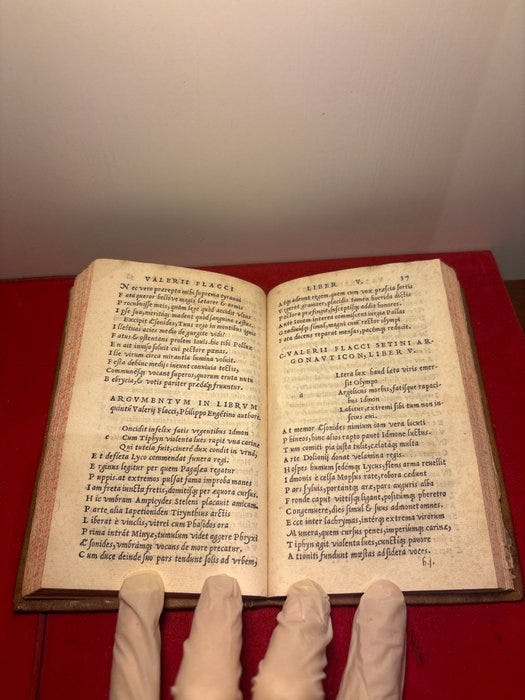 VALERII FLACCI
N ec vero præcepto mihi suprema tyranni
F ata queror bellive magis lætarer & armis
P rocubuisse meis; quàm lege quòd occidit ultus
I pse suus, meritiq; madent quòd sanguine cæstus.
Excipit Æsonides, Tuus ergo in montibus ignis
I lletuas acies medio de gurgite vidit.
F atus & ostentans prolem Iouis. hic tibi Pollux
E n ait inuiso soluit cui pectore pœnas.
I lle virum circa mirantia lumina voluit.
F esta dehinc medijs ineunt conuiuia tectis,
Communesq; vocant superos, quorum eruta nutu
B ebrycia, & votis pariter prædaq; fruuntur.
ARGVMENTVM IN LIBRVM
quintũ Valerij Flacci, Philippo Engētino authore.
Occidit infelix fatis vrgentibus Idmon
c Cum Tiphyn violenta lues rapit vna carinæ
Qui tutela fuit, cineres dux condit in vrna,
E t defleta Lyco commendat funera regi.
E rginus legitur per quem Pagasæa regatur
P uppis. at extremos pulsat fama improba manes
I am freta iuncta fretis, domitosq; per æquora cursus.
H ic vmbram Amplycides Steleni placauit amicam,
P arte alia Iapetioniden Tirynthus arctis
L iberat è vinclis, vitrei cum Phasidos ora
P rima intrat Minyæ, tumulum videt aggere Phryxi
Æ sonides, vmbramq; vocans de more precatur,
C um duce deinde suo pars tendunt solis ad vrbem;
LIBER V. 57
A tq; adeunt regem, quem cum vox præscia sortis
V rget grauiter, placidis tamen horrida dictis
P ectora præfingit, susceptisq; addit honores.
A nte tamen interea commiscet in regia Pallas
G radiuusq; simul, magni cum rector olympi
F ata docens reparat mensas, pacemq; reducit.
C. VALERII FLACCI SETINI AR-
GONAVTICON, LIBER V.
Ltera lux haud læta viris emer-
sit Olympo.
a Argolicus morbis, fatisque rapaci-
bus Idmon
Labitur, extremi sibi tum non in-
scius æui.
A t memor Æsonides nimium iam vera locuti
P hineos, hinc alios rapto pauet Idmone luctus.
T um comiti pia iusta tulit, cælataq; multa
A rte Dolionij donat velamina regis.
H ospes humum sedemq; Lycus, flens arma reuellit
I dmonis è celsa Mopsus rate, robora cedunt
P ars syluis, portantq; aræ, pars auguris alba
F ronde caput vittisq; ligant, positumq; pheretro
C ongemuere; dies simul & suus admonet omnes.
E cce inter lachrymas, intérq; extrema virorum
M unera, quem cursus penes, imperiumq; carinæ,
T iphyn agit violenta lues, cunctiq; pauore
A ttoniti fundunt mœstas adsidera voces.
h.j.